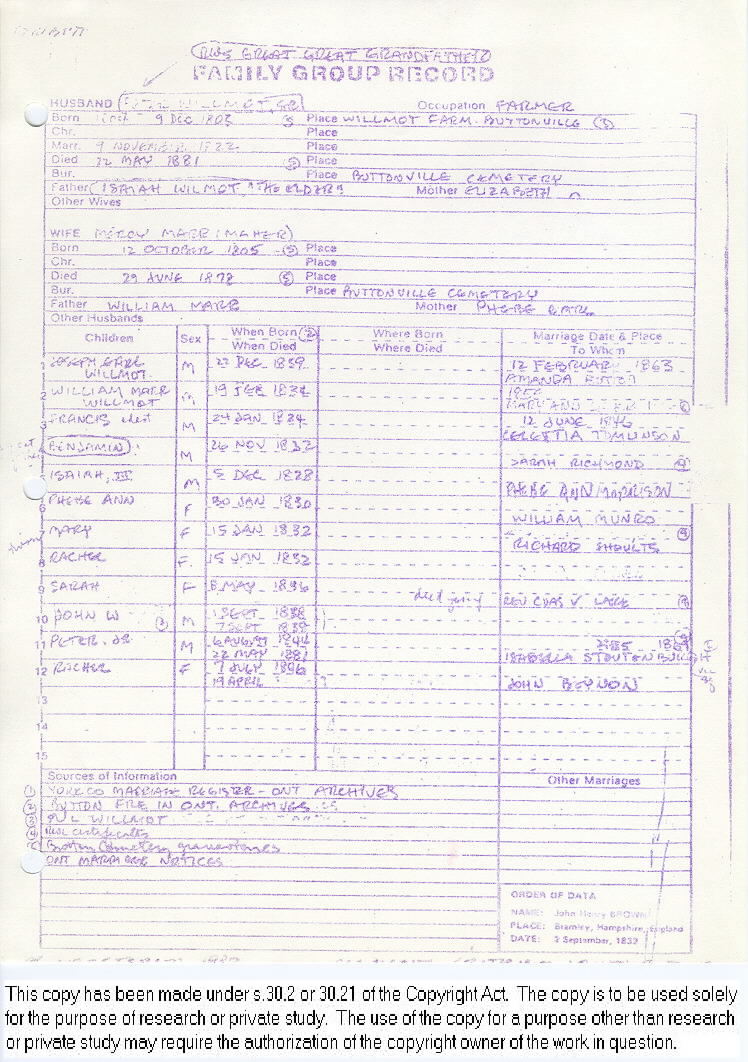 RWS GREAT GREAT GRANDFATHER
FAMILY GROUP RECORD
HUSBAND WILLMOT, SR Occupation FARMER
Born 9 DEC 1803 (3) Place WILLMOT FARM. BUTTONVILLE (3)
Chr. Place
Marr. 9 NOVEMBER 1822 Place
Died 22 MAY 1881 (5) Place
Bur. Place BUTTONVILLE CEMETERY
Father (ISAIAH WILMOT, "THE ELDER") Mother ELIZABETH
Other Wives
WIFE MERCY MARR (MAHER)
Born 12 OCTOBER 1805 (5) Place
Chr. Place
Died 29 JUNE 1878 (5) Place
Bur. Place BUTTONVILLE CEMETERY
Father WILLIAM MARR Mother PHEBE EARL
Other Husbands
Children Sex When Born (2) Where Born Marriage Date & Place
When Died Where Died To Whom
1 JOSEPH EARL WILLMOT. M 22 DEC 1839 12 FEBRUARY 1863
AMANDA
2 WILLIAM MARR WILLMOT M 19 FEB
MARY ANN
3 FRANCIS M 24 JAN 12 JUNE 1846
CELESTIA TOMLINSON
BENJAMIN M 26 NOV
SARAH RICHMOND
ISAIAH, III M 5 DEC 1828
PHEBE ANN MORRISON
6 PHEBE ANN F 30 JAN 1830
WILLIAM MUNRO
7 MARY F 15 JAN 1832
RICHARD SHOULTS
twins
8 RACHEL F 15 JAN 1832
9 SARAH F 8 MAY 1836 died young REV CHAS V. LAKE
10 JOHN W (3) M 1 SEPT 1838
7 SEPT 1839
11 PETER. JR M 6 AUGUST
22 MAY 1881 ISABELLA STOUTENBURGH
12 RACHEL F 7 JULY 1846
19 APRIL JOHN BEYNON
13
14
15
Sources of Information Other Marriages
(1) YORK CO MARRIAGE REGISTER - ONT ARCHIVES
(2) BUTTON FILE IN ONT. ARCHIVES
(3) WILLMOT
(4) certificates
Cemetery gravestones
ONT MARRIAGE NOTICES
ORDER OF DATA
NAME: John Henry BROWN
PLACE: Bramley, Hampshire, England
DATE: 2 September, 1832
This copy has been made under s.30.2 or 30.21 of the Copyright Act. The copy is to be used solely
for the purpose of research or private study. The use of the copy for a purpose other than research
or private study may require the authorization of the copyright owner of the work in question.